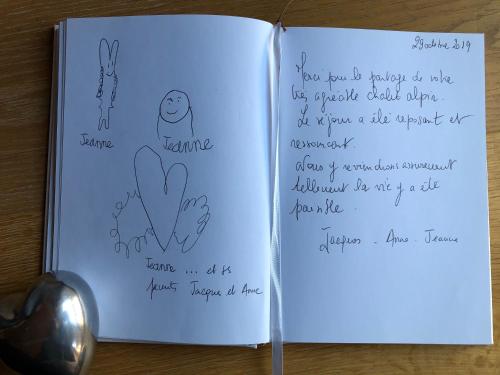 Jeanne
Jeanne
Jeanne ... et ses
parents Jacques et Anne
29 octobre 2019
Merci pour le partage de votre
très agréable chalet alpin.
Le séjour a été reposant et
ressourçant.
Nous y reviendrons assurément
tellement la vie y a été
paisible.
Jacques - Anne - Jeanne